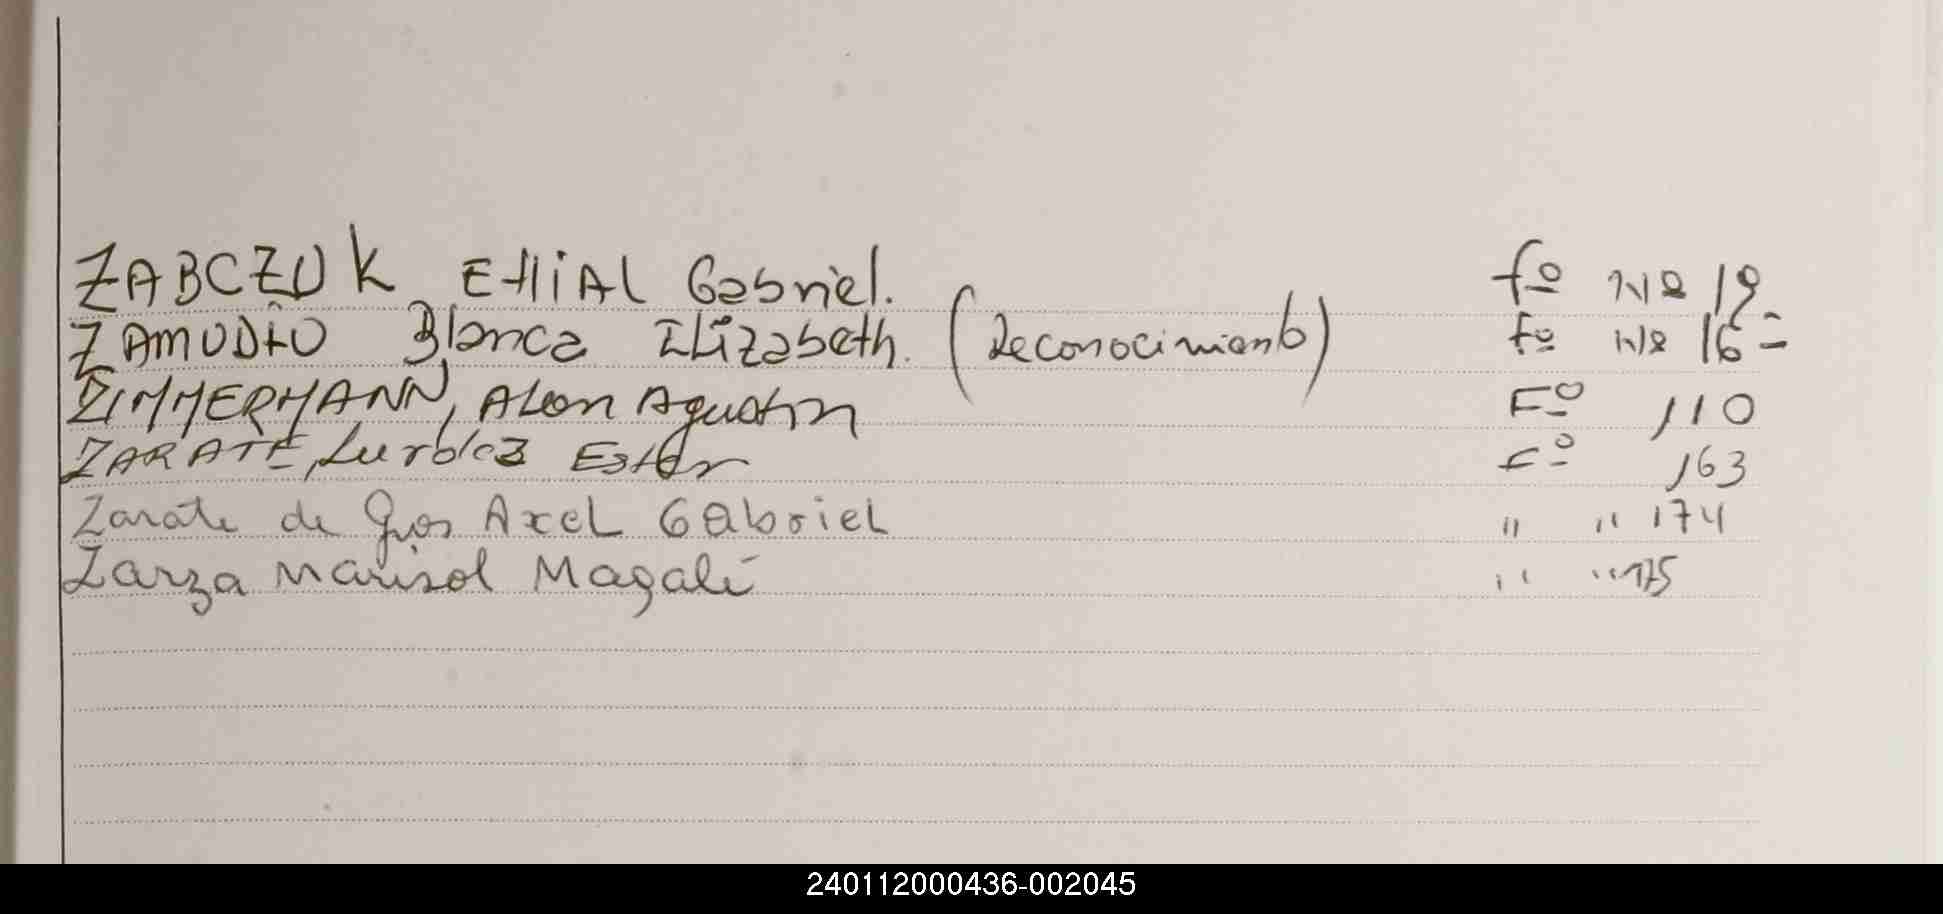 ZABCZUK EHiAl Gabriel. fº Nº 19
ZAMUDIO Blanca Elizabeth. (Reconocimiento) fº Nº 16=
ZIMMERMANN, Alan Agustin Fº 110
ZARATE, Ester Fº 163
Zarate de Axel Gabriel " " 174
Zarza Marisol Magalí " " 175
240112000436-002045